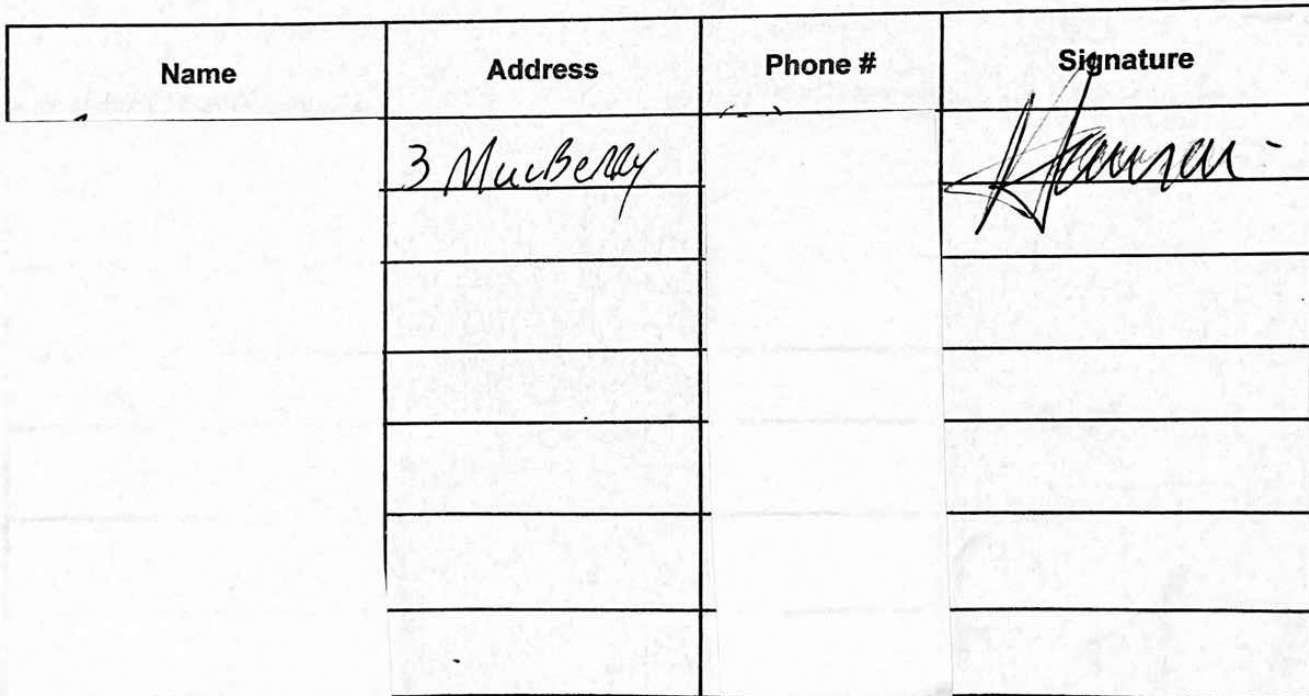 Name Address Phone # Signature
3 MulBerry